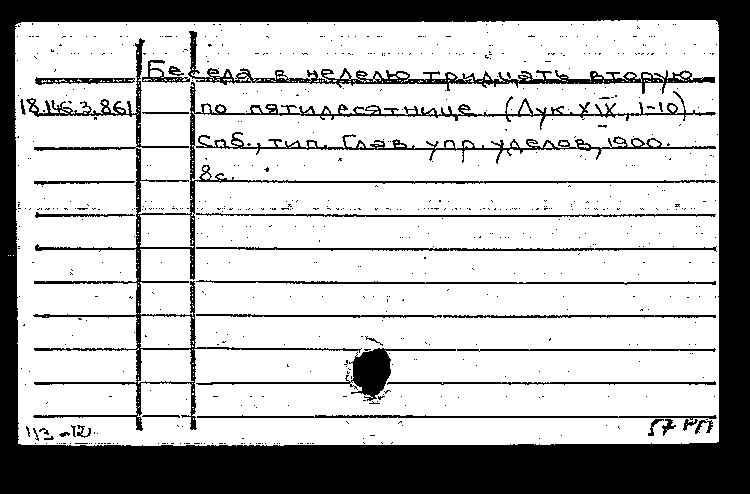 Беседа в неделю тридцать вторую
18.146.3.861 по пятидесятнице (Лук. XIX, 1-10).
Спб., тип. Глав. упр. уделов, 1900.
8с.
57